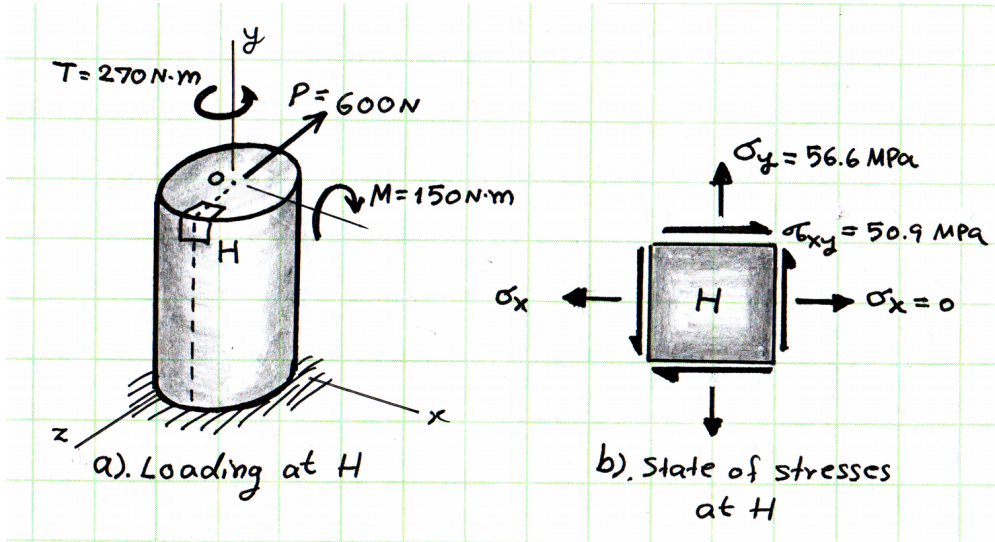 y
T = 270 N·m
P = 600 N
O
M = 150 N·m
H
z
x
a). Loading at H
σy = 56.6 MPa
τxy = 50.9 MPa
σx
H
σx = 0
b). State of stresses
at H